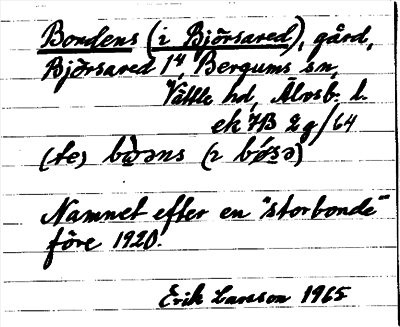 Bondens (i Björsared), gård,
Björsared 1⁴, Bergums sn,
Vättle hd, Älvsb. l.
ek 7B 2g/64
(te) bò̤əns (ɩ bǿ̤sə)
Namnet efter en "storbonde"
före 1920.
Erik Larsson 1965